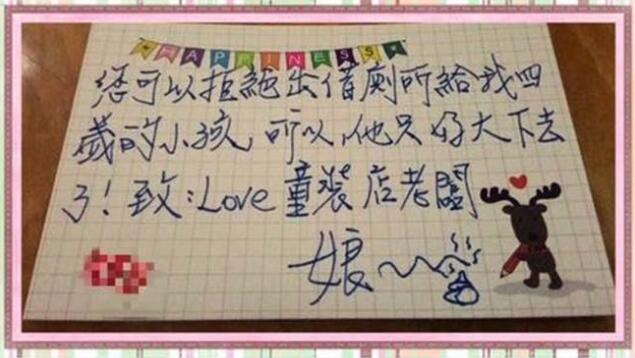 HAPPINESS
您可以拒絕出借廁所給我四
歲的小孩,所以,他只好大下去
了!致:Love 童裝店老闆
娘~